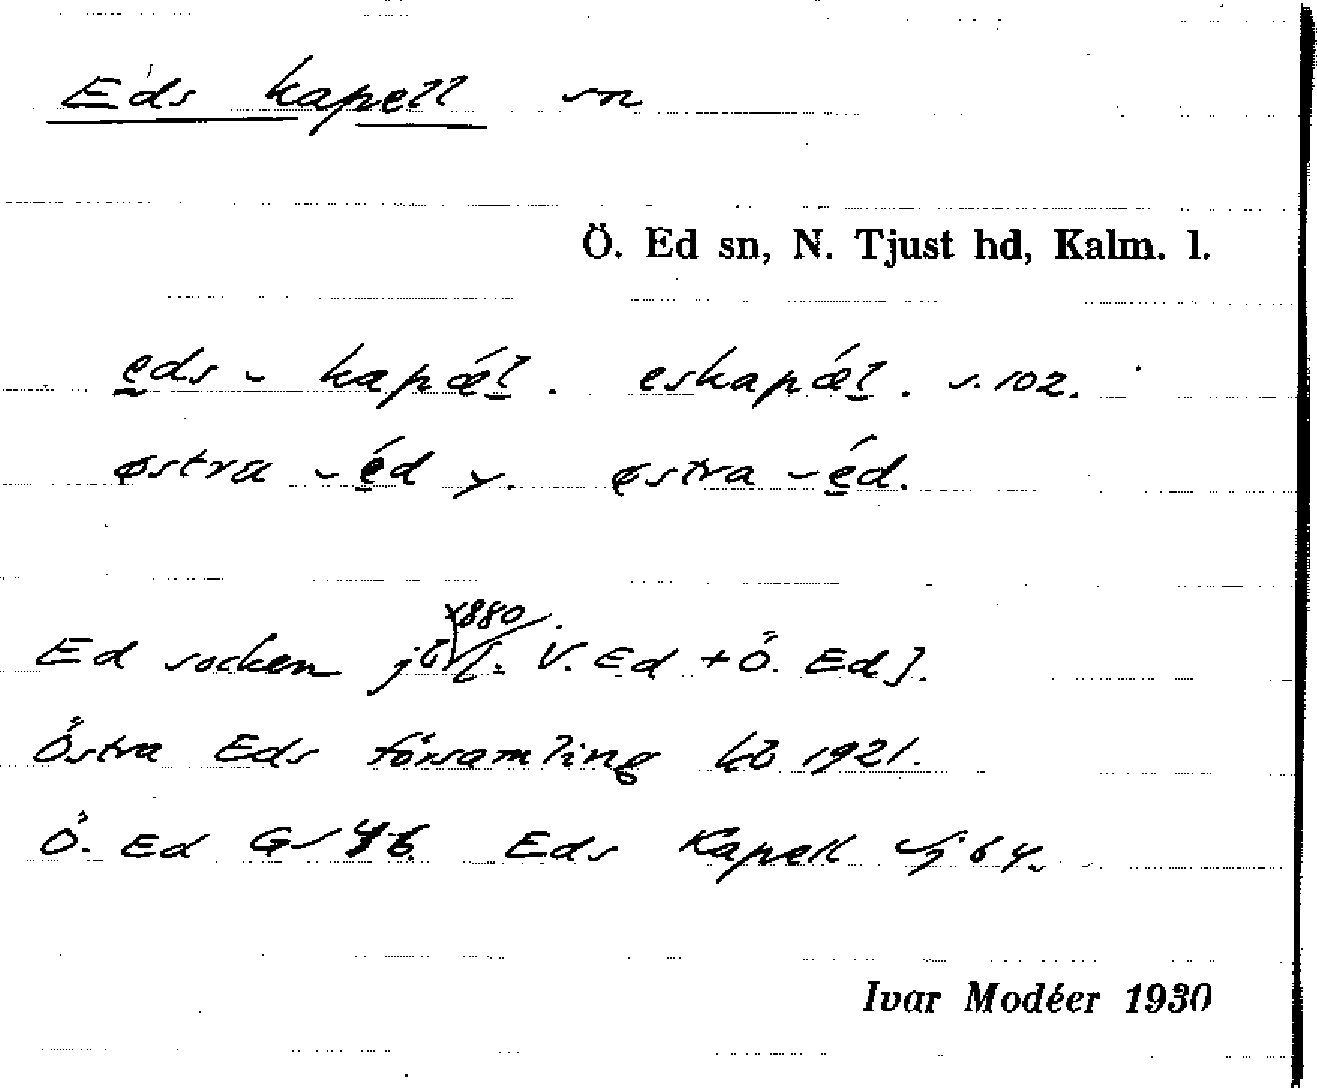 Eds kapell sn
Ö. Ed sn, N. Tjust hd, Kalm. l.
eds - kapǽl. eskapǽl. s. 102.
østra - éd y. østra - éd.
1880
Ed socken V. Ed + Ö. Ed].
Östra Eds församling kb 1921.
Ö. Ed GS Eds Kapell 64.
Ivar Modéer 1930